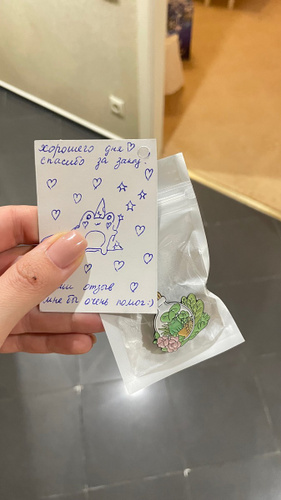 хорошего дня
спасибо за заказ!
отзыв
мне бы очень помог:)